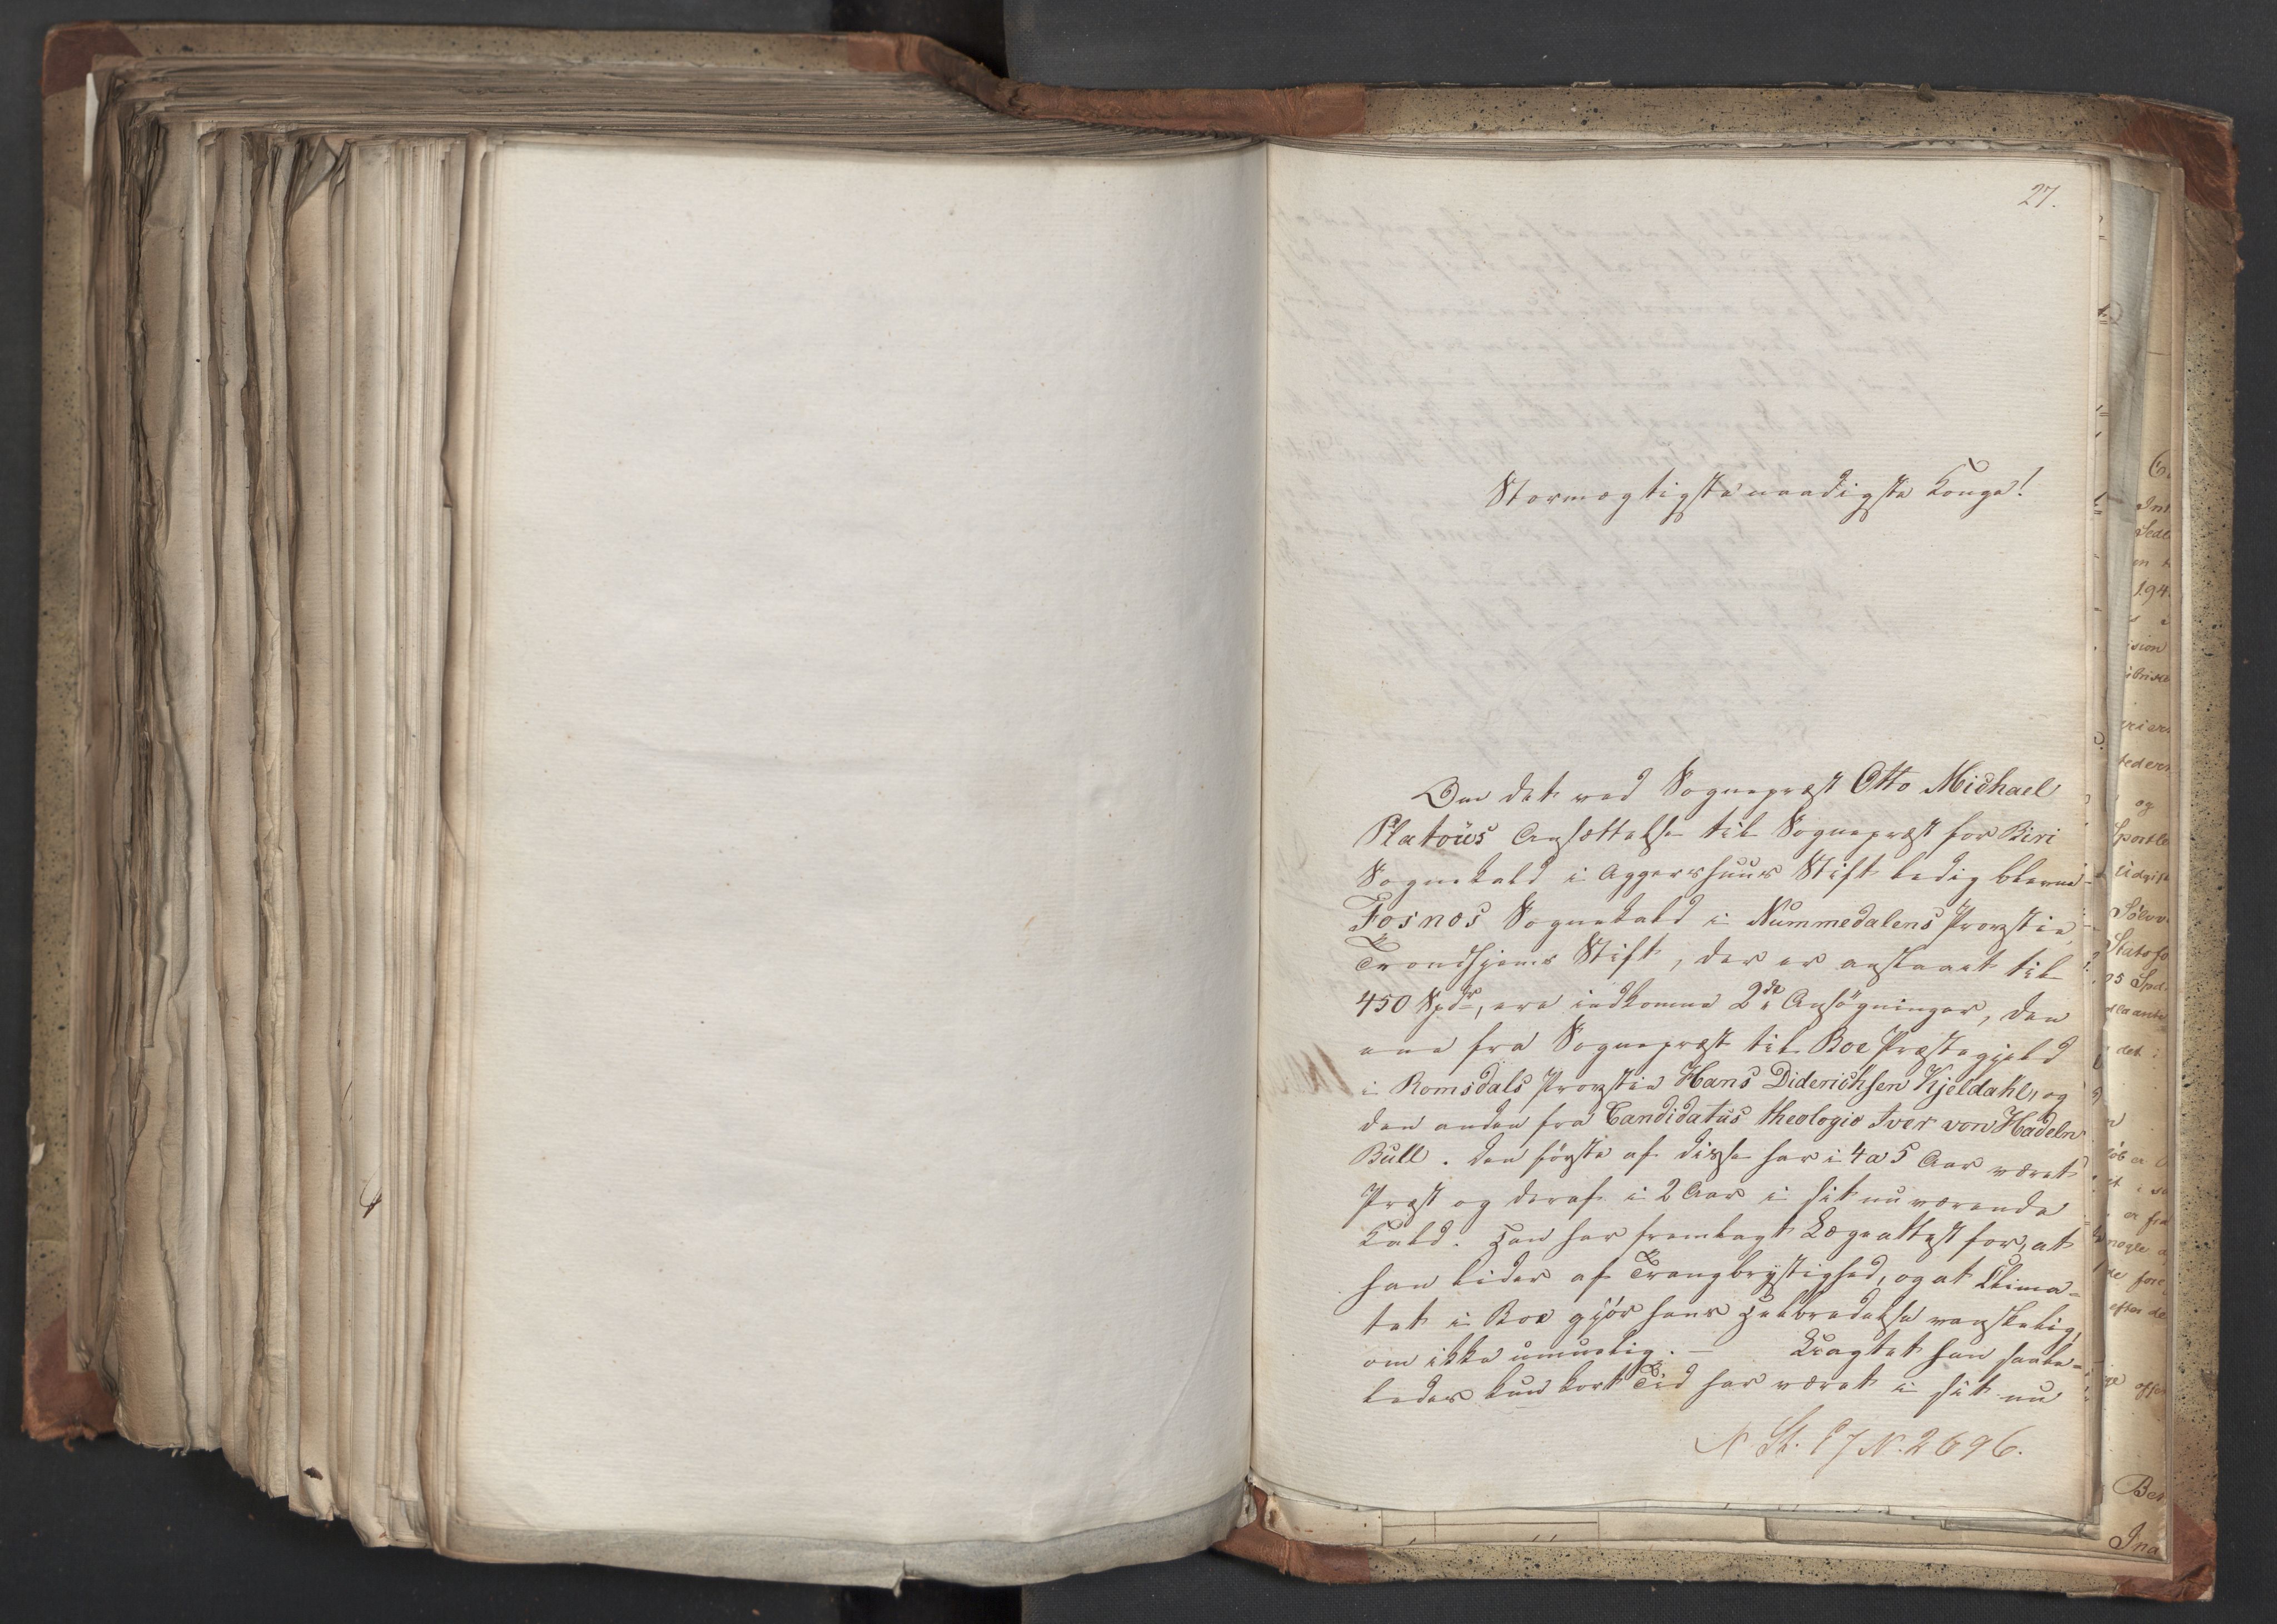 27.
Stormægtigste naadigste Konge!
Om det ved Sognepræst Otto Michael
Platoüs Ansættelse til Sognepræst for Biri
Sognekald i Aggershuus Stift ledig blevne
Fosnæs Sognekald i Nummedalens Provstie
Trondhjems Stift, der er anslaaet til
450 Spdr, ere indkomne 2de Ansøgninger, den
ene fra Sognepræst til Boe Præstegjeld
i Romsdals Provstie Hans Diderichsen Kjeldahl, og
den anden fra Candidatus theologiæ Iver von Hadeln
Bull. Den første af disse har i 4 a 5 Aar været
Præst og deraf i 2 Aar i sit nu værende
Kald. Han har fremlagt Lægeattest for, at
han lider af Trangbrystighed, og at Clima-
tet i Boe gjør hans Helbredelse vanskelig,
om ikke umuelig. — Uagtet han saale-
ledes kun kort Tid har været i sit nu
N. 2696.